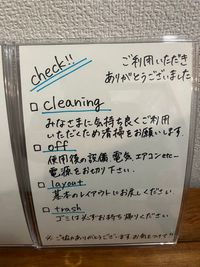 check!!
ご利用いただき
ありがとうございました
□ cleaning
みなさまに気持ち良くご利用
いただくため清掃をお願いします.
□ off
使用後の設備、電気、エアコンetc…
電源をお切り下さい.
□ layout
基本のレイアウトにお戻しください
□ trash
ゴミは必ずお持ち帰りください
※ご協力ありがとうございます お気をつけて